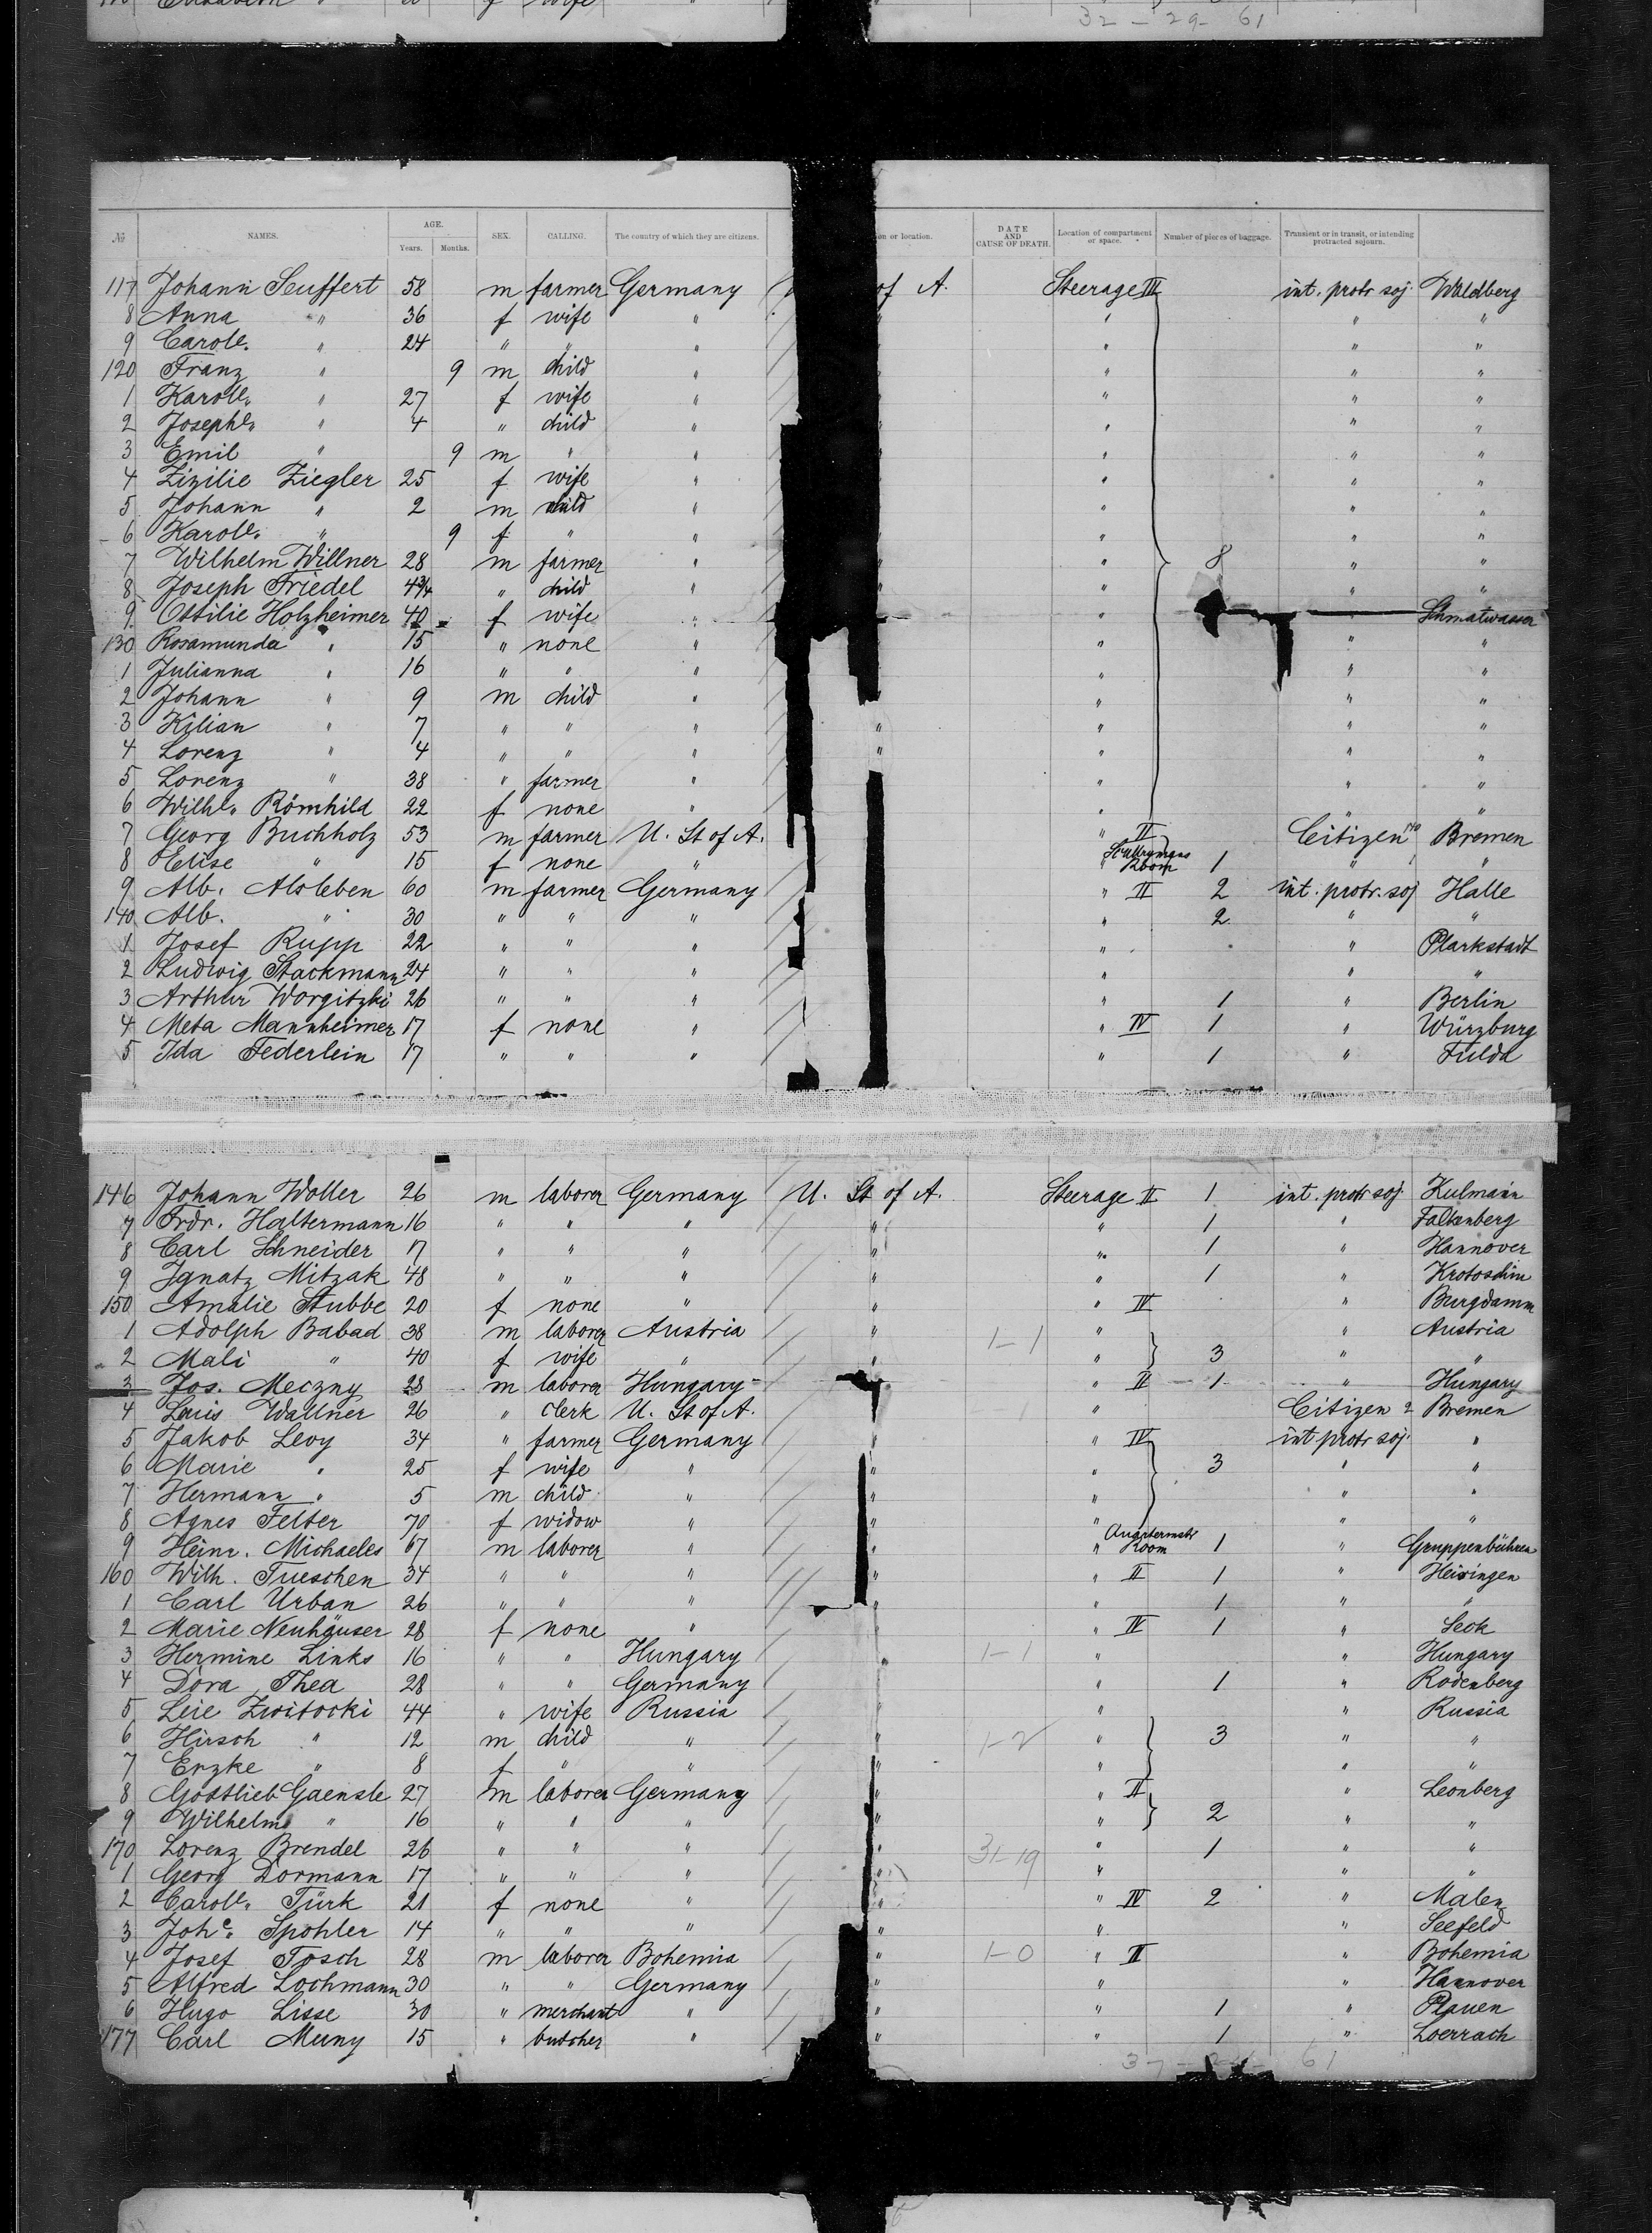 Elisabeth " f wife "
32 - 29 - 61
№ NAMES. AGE. Years. Months. SEX. CALLING. The country of which they are citizens. on or location. DATE AND CAUSE OF DEATH. Location of compartment or space. Number of pieces of baggage. Transient or in transit, or intending protracted sojourn.
117 Johann Seuffert 58 m farmer Germany of A. Steerage III int. protr soj. Waldberg
8 Anna " 36 f wife " " " " "
9 Carole. " 24 " " " " " " "
120 Franz " 9 m child " " " " "
1 Karole. " 27 f wife " " " " "
2 Josephe. " 4 " child " " " " "
3 Emil " 9 m " " " " " "
4 Zizilie Ziegler 25 f wife " " " " "
5 Johann " 2 m child " " " " "
6 Karole. " 9 f " " " " " "
7 Wilhelm Willner 28 m farmer " " " 8 " "
8 Joseph Friedel 4 3/4 " child " " " " "
9 Ottilie Holzheimer 40 f wife " " " Schmalwasser
130 Rosamunda " 15 " none " " " "
1 Julianna " 16 " " " " " "
2 Johann " 9 m child " " " "
3 Kilian " 7 " " " " " " "
4 Lorenz " 4 " " " " " " "
5 Lorenz " 38 " farmer " " " "
6 Wilhe. Römhild 22 f none " " " "
7 Georg Buchholz 53 m farmer U. St of A. " II Citizen Bremen
8 Elise " 15 f none " " Room 1 " "
9 Alb. Alsleben 60 m farmer Germany " II 2 int. protr. soj Halle
140 Alb. " 30 " " " " 2 " "
1 Josef Rupp 22 " " " " " Plankstadt
2 Ludwig Stackmann 24 " " " " " "
3 Arthur Worgitzki 26 " " " " 1 " Berlin
4 Meta Mannheimer 17 f none " " IV 1 " Würzburg
5 Ida Federlein 17 " " " " 1 " Fulda
146 Johann Woller 26 m laborer Germany U. St of A. Steerage II 1 int. protr soj. Kulmain
7 Frdr. Haltermann 16 " " " " " 1 " Falkenberg
8 Carl Schneider 17 " " " " " 1 " Hannover
9 Ignatz Mitzak 48 " " " " " 1 " Krotoschin
150 Amalie Stubbe 20 f none " " " IV " Burgdamm
1 Adolph Babad 38 m laborer Austria " 1-1 " " Austria
2 Mali " 40 f wife " " " 3 " "
3 Jos. Meczny 28 m laborer Hungary " II 1 " Hungary
4 Louis Wallner 26 " clerk U. St of A. " Citizen 2 Bremen
5 Jakob Levy 34 " farmer Germany " " IV int protr soj. "
6 Marie " 25 f wife " " " 3 " "
7 Hermann " 5 m child " " " " "
8 Agnes Felter 70 f widow " " " " "
9 Heinr. Michaeles 67 m laborer " " " Quartermstr Room 1 " Gruppenbühren
160 Wilh. Tueschen 34 " " " " " II 1 " Heisingen
1 Carl Urban 26 " " " " " 1 " "
2 Marie Neuhäuser 28 f none " " " IV 1 " Seck
3 Hermine Links 16 " " Hungary " 1-1 " " Hungary
4 Dora Thea 28 " " Germany " " 1 " Rodenberg
5 Leie Zwitocki 44 " wife Russia " " " Russia
6 Hirsch " 12 m child " " 1-2 " 3 " "
7 Erzke " 8 f " " " " " "
8 Gottlieb Gaensle 27 m laborer Germany " " II " Leonberg
9 Wilhelm " 16 " " " " " 2 " "
170 Lorenz Brendel 26 " " " " 31-19 " 1 " "
1 Georg Dormann 17 " " " " " " "
2 Carole. Türk 21 f none " " " IV 2 " Malen
3 Johe. Spohler 14 " " " " " " Seefeld
4 Josef Tosch 28 m laborer Bohemia " 1-0 " II " Bohemia
5 Alfred Lochmann 30 " " Germany " " " Hannover
6 Hugo Lisse 30 " merchant " " " 1 " Plauen
177 Carl Muny 15 " butcher " " " 1 " Loerrach
61